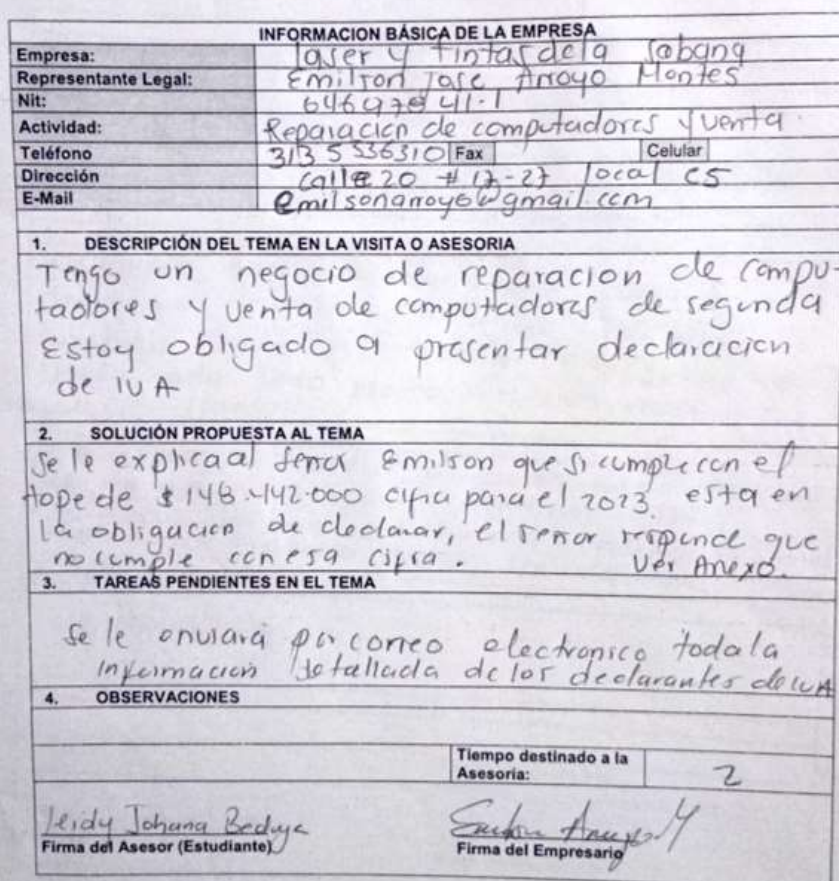 INFORMACION BÁSICA DE LA EMPRESA
Empresa: laser y tintas de la sabana
Representante Legal: Emilson Jose Arroyo Montes
Nit:
Actividad: Reparacion de computadores y venta.
Teléfono 313 5536310 Fax Celular
Dirección calle 20 # 17-27 local C5
E-Mail emilsonarroyo@gmail.com
1. DESCRIPCIÓN DEL TEMA EN LA VISITA O ASESORIA
Tengo un negocio de reparacion de compu-
tadores y venta de computadores de segunda
Estoy obligado a presentar declaracion
de IVA
2. SOLUCIÓN PROPUESTA AL TEMA
Se le explica al señor Emilson que si cumple con el
tope de $148.442.000 cifra para el 2023 esta en
la obligacion de declarar, el señor responde que
no cumple con esa cifra. Ver Anexo.
3. TAREAS PENDIENTES EN EL TEMA
Se le enviara por correo electronico toda la
informacion detallada de los declarantes de IVA
4. OBSERVACIONES
Tiempo destinado a la
Asesoria: 2
Leidy Johana Beduya
Firma del Asesor (Estudiante)
Firma del Empresario